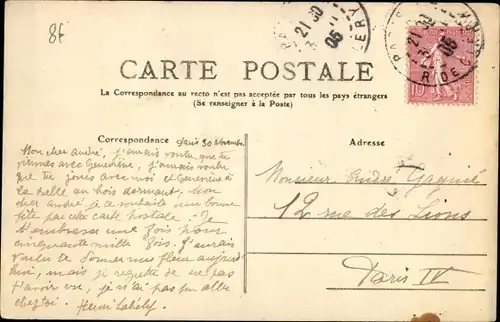 8f
21 30
05
CARTE POSTALE
La Correspondance au recto n'est pas acceptée par tous les pays étrangers
(Se renseigner à la Poste)
Correspondance
Paris 30 Novembre
Adresse
Mon cher André, j'aurais voulu que tu
viennes avec Geneviève, j'aurais voulu
que tu joues avec moi et Geneviève à
la belle au bois dormant. Mon
cher andré je te souhaite une bonne
fête par cette carte postale. Je
t'embrasse une fois pour
cinquante mille fois. J'aurais
voulu te donner une fleur aujourd
hui, mais je regrette de ne pas
t'avoir vu, je n'ai pas pu aller
chez toi. Henri
Monsieur André
12 rue des Lions
Paris IV